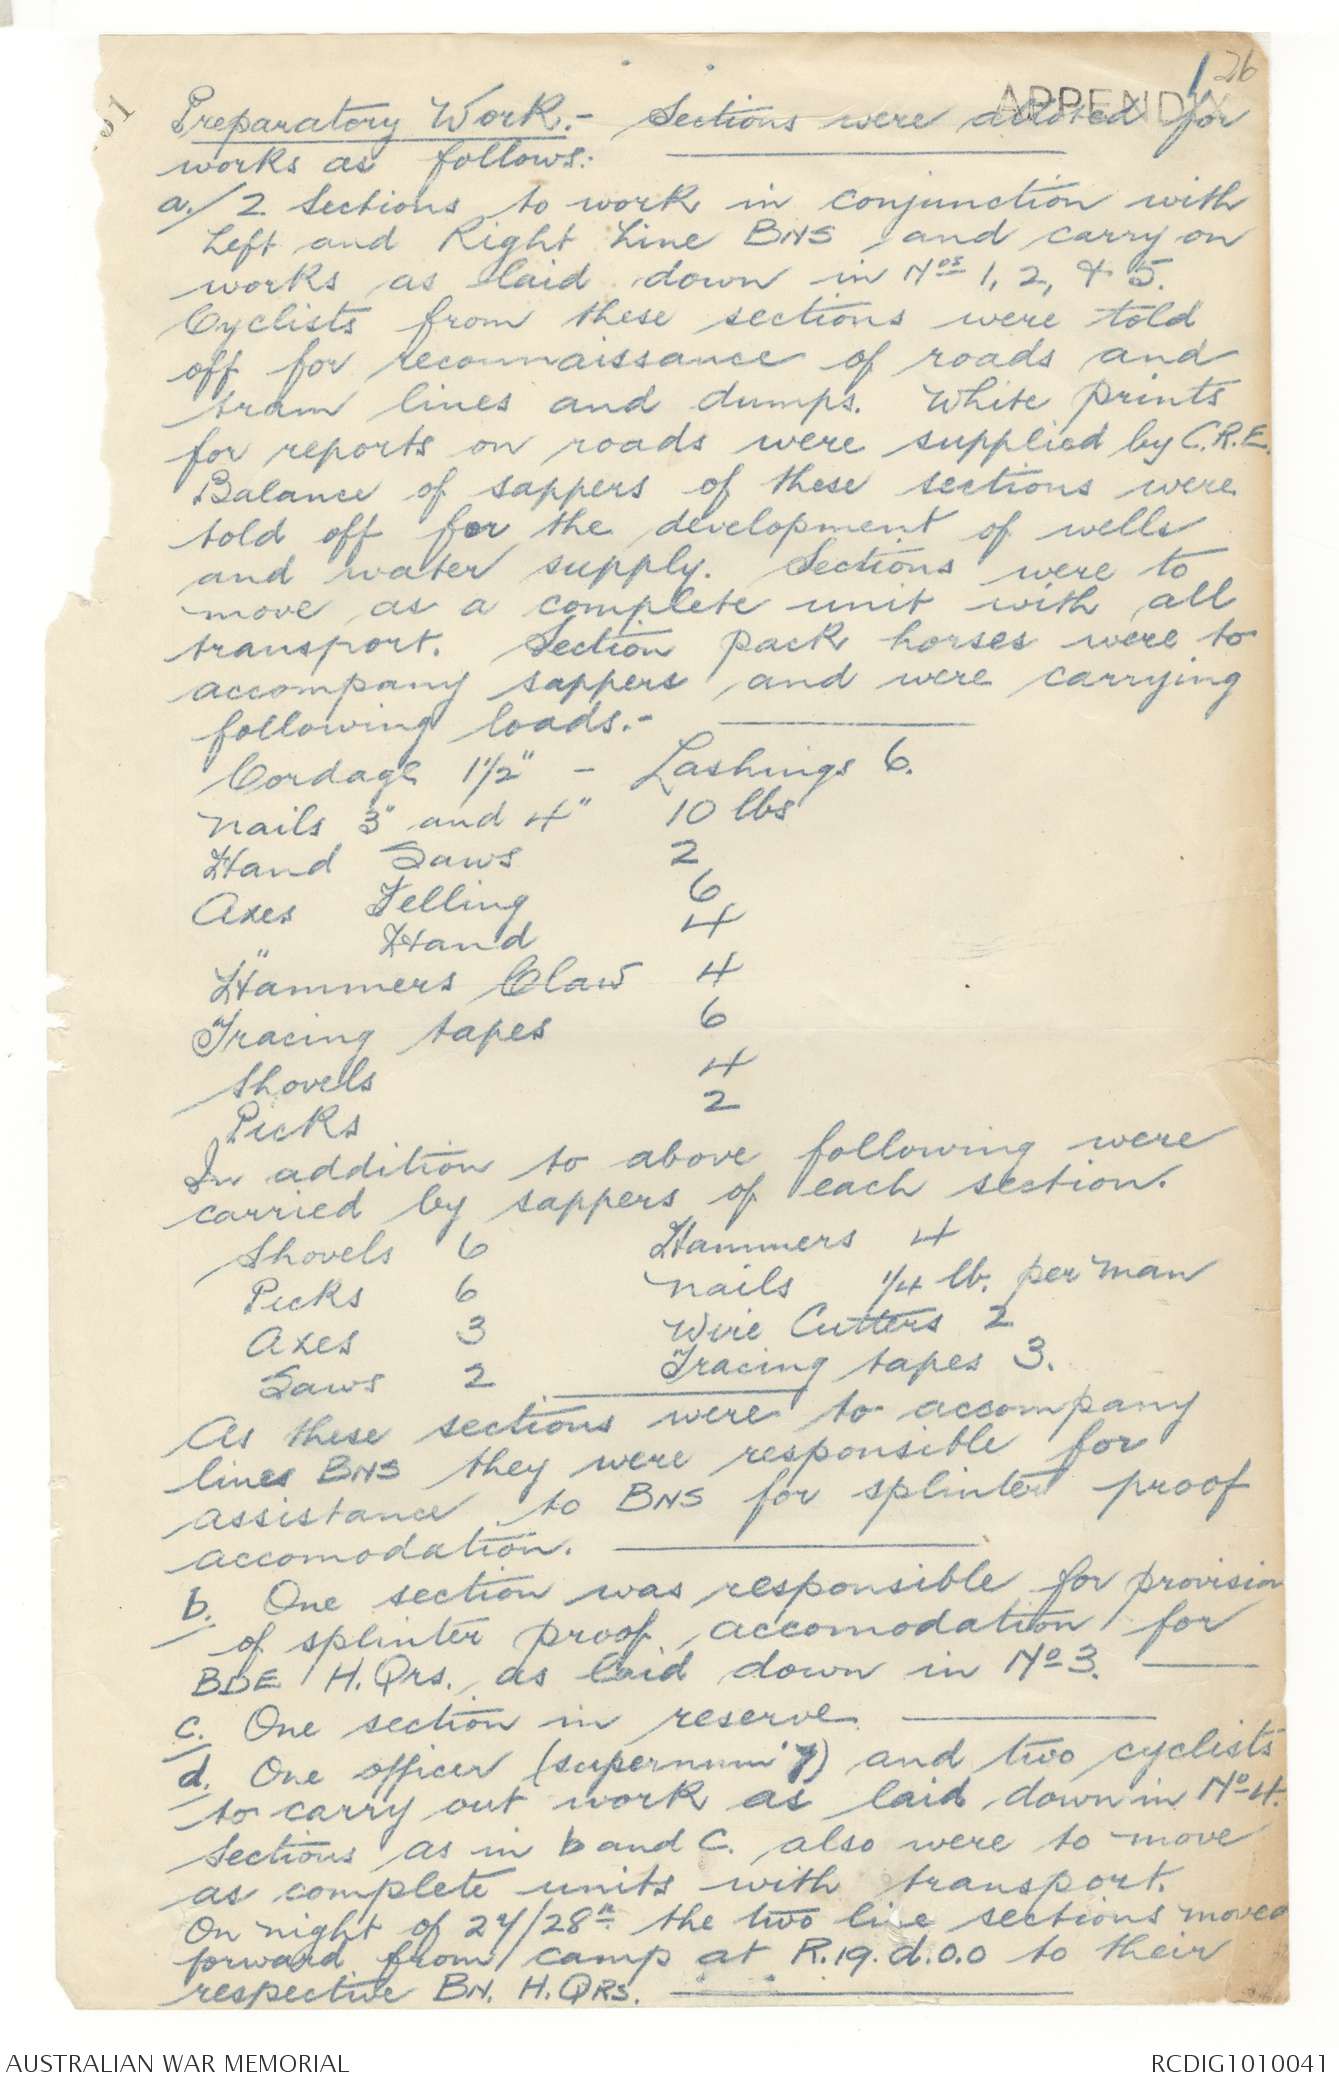 1 26
APPENDIX
Preparatory Work.- Sections were alloted for
works as follows:
a./ 2 Sections to work in conjunction with
Left and Right Line BNS and carry on
works as laid down in Nos 1, 2, & 5.
Cyclists from these sections were told
off for reconnaissance of roads and
tram lines and dumps. White prints
for reports on roads were supplied by C.R.E.
Balance of sappers of these sections were
told off for the development of wells
and water supply. Sections were to
move as a complete unit with all
transport. Section pack horses were to
accompany sappers and were carrying
following loads.-
Cordage 1 1/2" - Lashings 6.
Nails 3" and 4" 10 lbs
Hand Saws 2
Axes Felling 6
" Hand 4
Hammers Claw 4
Tracing tapes 6
Shovels 4
Picks 2
In addition to above following were
carried by sappers of each section.
Shovels 6 Hammers 4
Picks 6 Nails 1/4 lb. per man
Axes 3 Wire Cutters 2
Saws 2 Tracing tapes 3.
As these sections were to accompany
lines BNS they were responsible for
assistance to BNS for splinter proof
accomodation.
b. One section was responsible for provision
of splinter proof accomodation for
BDE H.Qrs. as laid down in No 3.
c. One section in reserve
d. One officer (supernum'y) and two cyclists
to carry out work as laid down in No 4.
Sections as in b and c. also were to move
as complete units with transport.
On night of 27/28th the two line sections moved
forward from camp at R.19.d.0.0 to their
respective BN. H.QRS.
AUSTRALIAN WAR MEMORIAL
RCDIG1010041